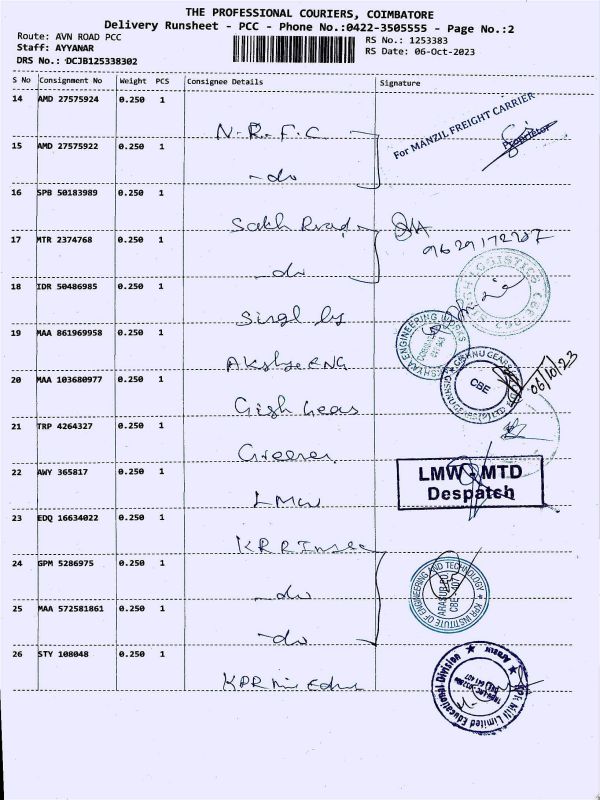 THE PROFESSIONAL COURIERS, COIMBATORE
Delivery Runsheet - PCC - Phone No.:0422-3505555 - Page No.:2
Route: AVN ROAD PCC
Staff: AYYANAR
DRS No.: DCJB125338302
RS No.: 1253383
RS Date: 06-Oct-2023
S No Consignment No Weight PCS Consignee Details Signature
14 AMD 27575924 0.250 1
N.R.F.C
For MANZIL FREIGHT CARRIER
Proprietor
15 AMD 27575922 0.250 1
-do
16 SPB 50183989 0.250 1
17 MTR 2374768 0.250 1
-do
18 IDR 50486985 0.250 1
19 MAA 861969958 0.250 1
ENGINEERING WORKS
20 MAA 103680977 0.250 1
CBE
06/10/23
21 TRP 4264327 0.250 1
22 AWY 365817 0.250 1
LMW
LMW - MTD
Despatch
23 EDQ 16634022 0.250 1
24 GPM 5286975 0.250 1
-do
KPR INSTITUTE OF ENGINEERING AND TECHNOLOGY
25 MAA 572581861 0.250 1
-do
26 STY 108048 0.250 1
KPR Mill Limited Educational Division
Arasur